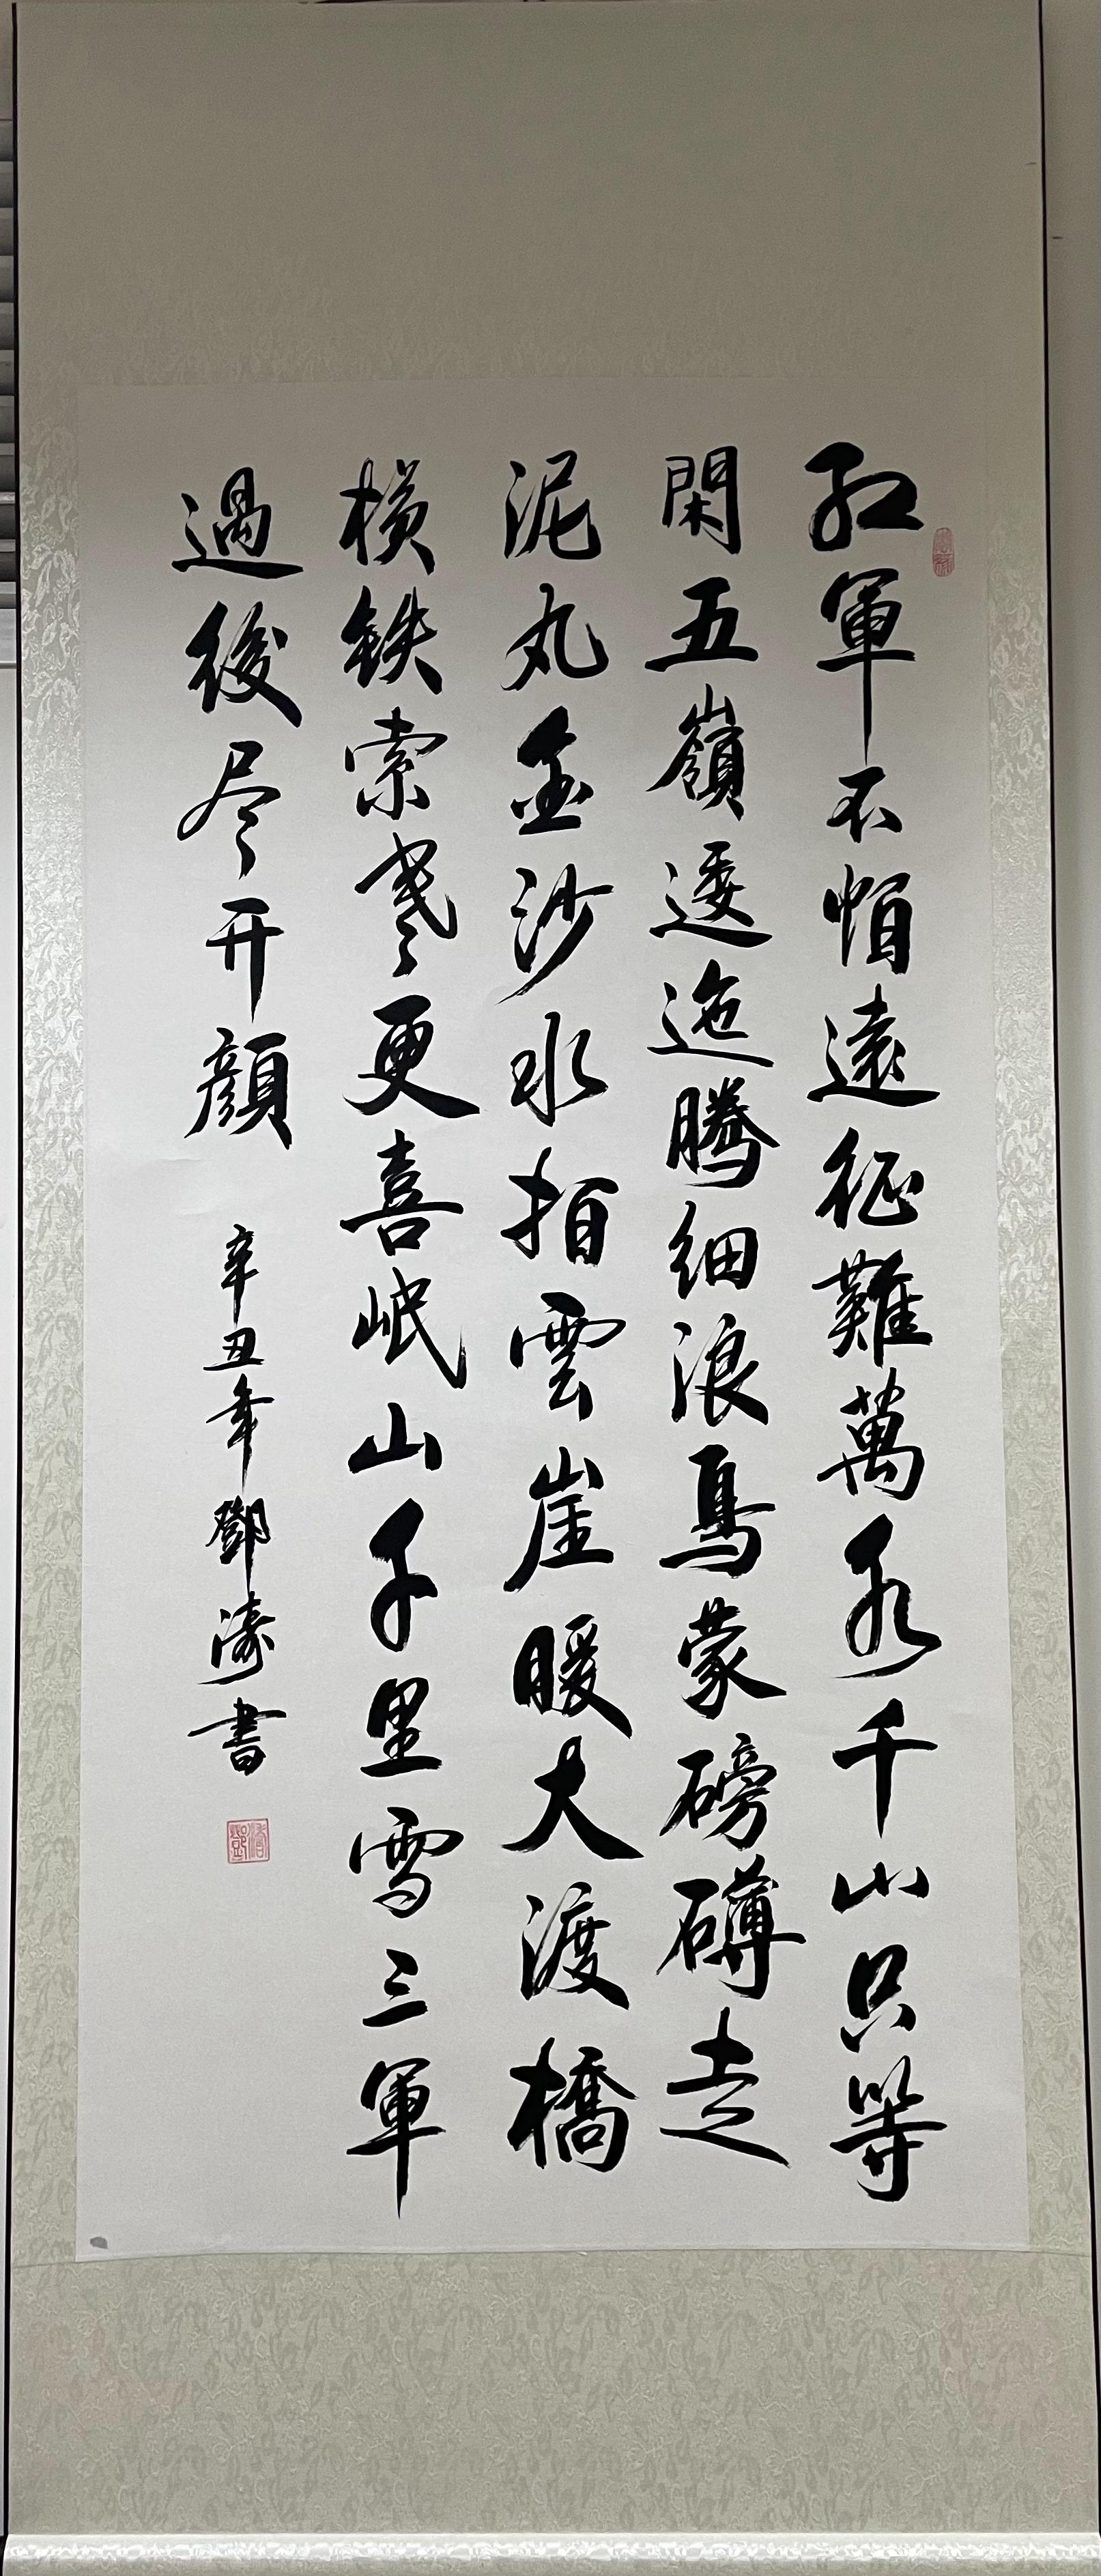 紅軍不怕遠征難萬水千山只等
閑五嶺逶迤騰细浪烏蒙磅礴走
泥丸金沙水拍雲崖暖大渡橋
橫铁索寒更喜岷山千里雪三軍
過後尽开顔
辛丑年鄧濤書
鄧濤